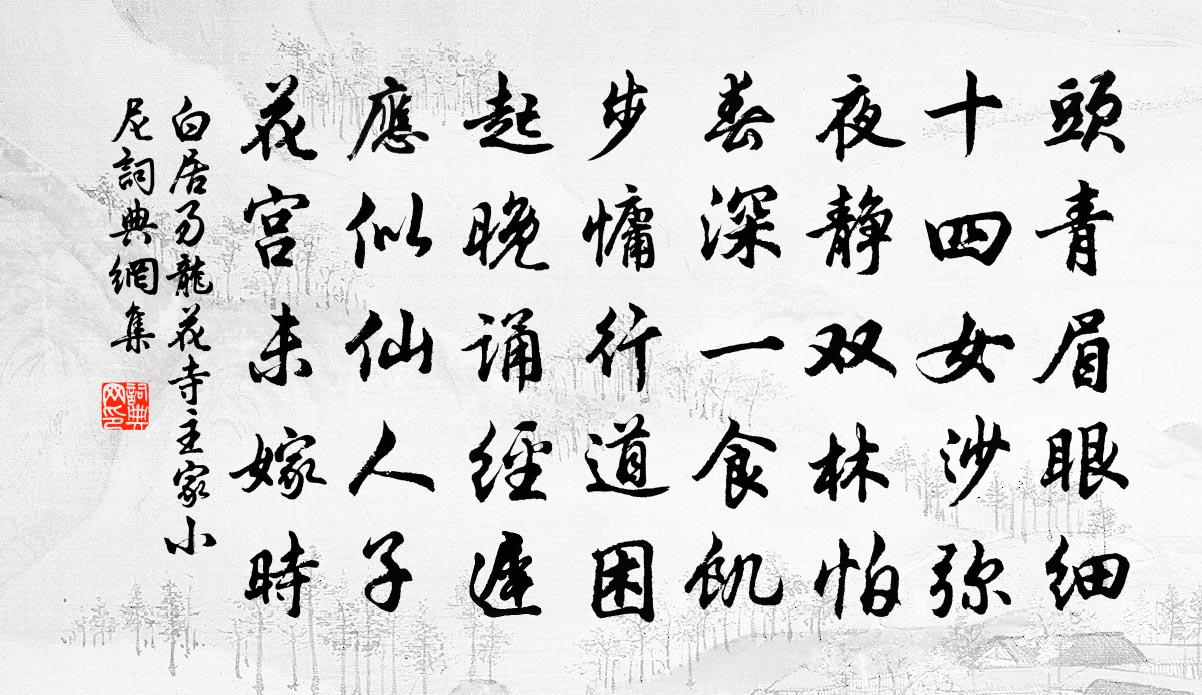 頭青眉眼細
十四女沙弥
夜静双林怕
春深一食飢
步慵行道困
起晚誦經遲
應似仙人子
花宫未嫁時
白居易龍花寺主家小
尼詞典網集
詞典
网印